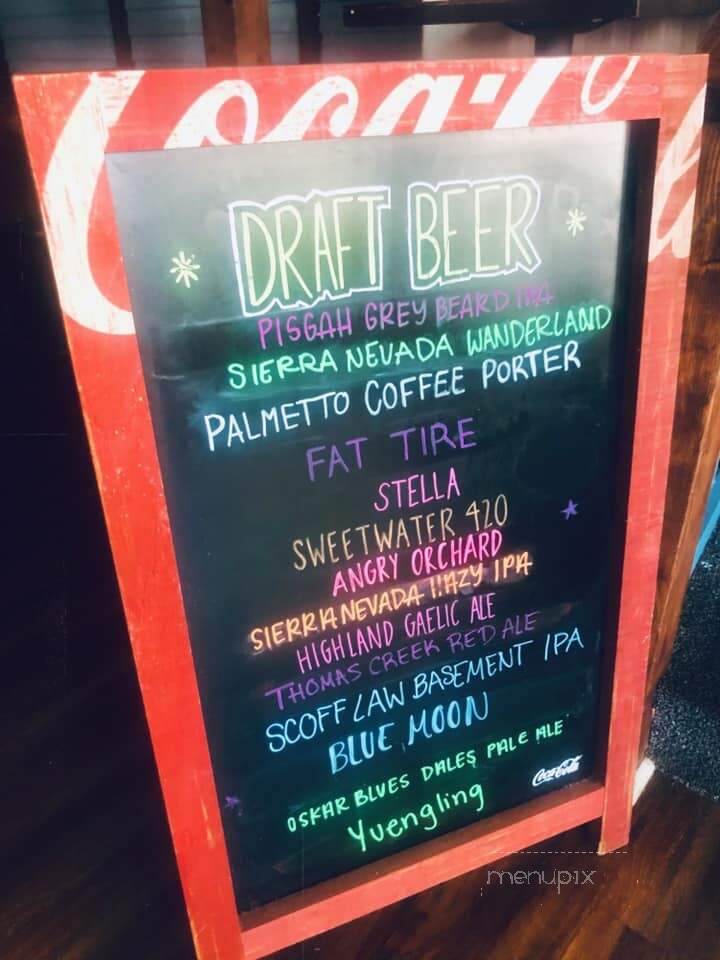 Coca-Co
DRAFT BEER
PISGAH GREY BEARD IPA
SIERRA NEVADA WANDERLAND
PALMETTO COFFEE PORTER
FAT TIRE
STELLA
SWEETWATER 420
ANGRY ORCHARD
SIERRA NEVADA HAZY IPA
HIGHLAND GAELIC ALE
THOMAS CREEK RED ALE
SCOFFLAW BASEMENT IPA
BLUE MOON
OSKAR BLUES DALES PALE ALE
Coca-Cola
Yuengling
menupix